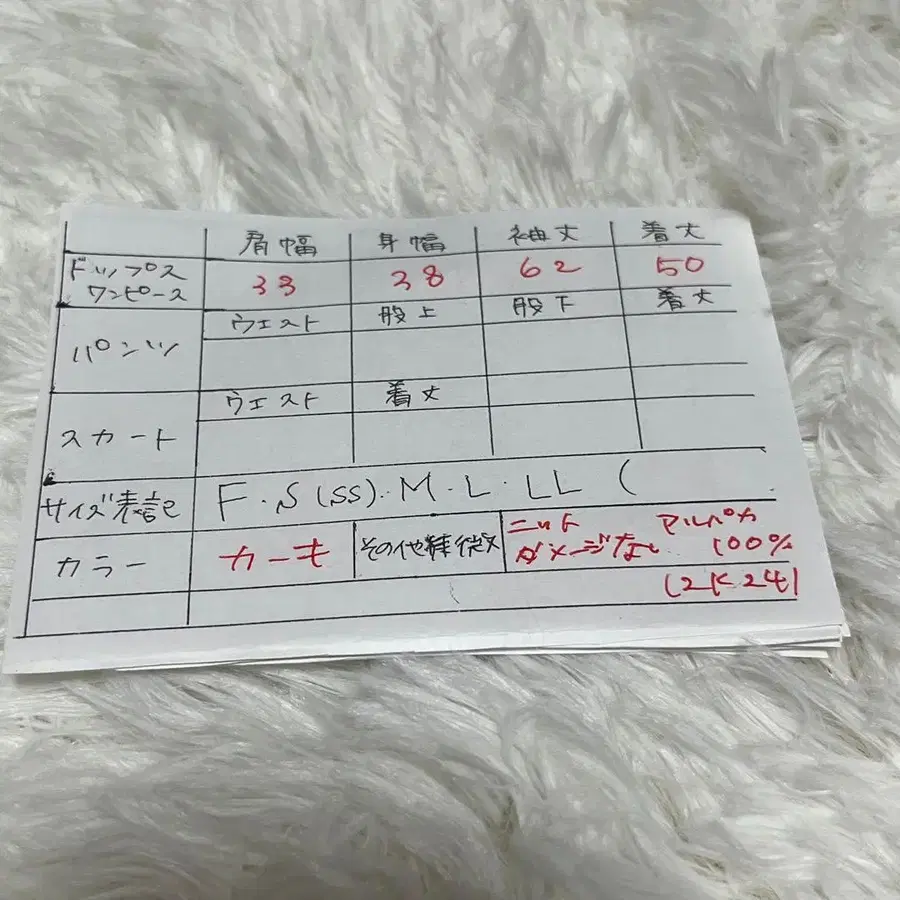 肩幅 身幅 袖丈 着丈
トップス ワンピース 33 38 62 50
パンツ ウエスト 股上 股下 着丈
スカート ウエスト 着丈
サイズ表記 F・S(SS)・M・L・LL (
カラー カーキ その他特徴 ニット アルパカ
ダメージなし 100%
(2K24)